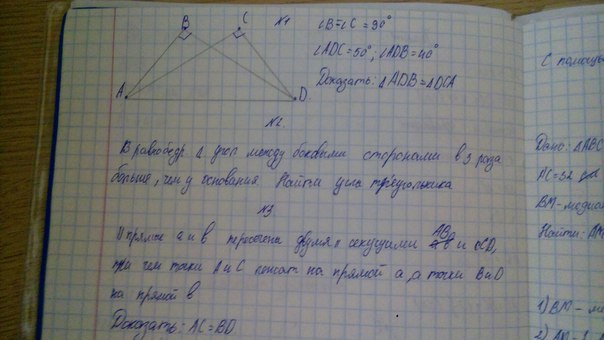 B C N1 ∠B=∠C = 90°
∠ADC=50°; ∠ADB=40°
A D Доказать: △ADB=△DCA
N2.
В равнобедр. △ угол между боковыми сторонами в 3 раза
больше, чем у основания Найти углы треугольника
N3
|| прямые a и b пересечены двумя || секущими AB и CD,
при чем точки A и C лежат на прямой a, а точки B и D
на прямой b
Доказать: AC=BD
С помощь
Дано: △ABC
AC=32 см
BM-медиан
Найти: AM
1) BM-ме